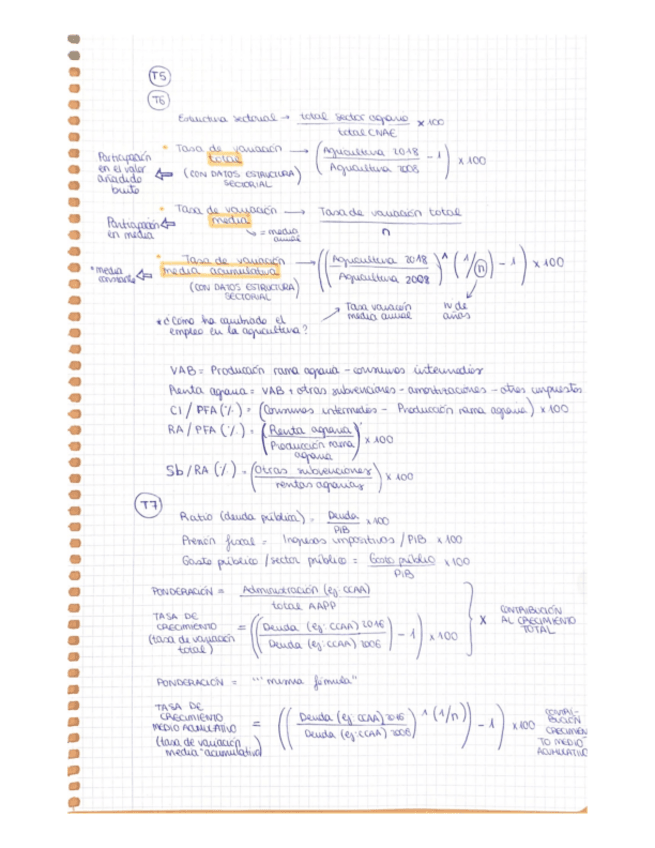 T5
T6
Estructura sectorial → total sector agrario / total CNAE × 100
* Tasa de variación total (CON DATOS ESTRUCTURA SECTORIAL) → (Agricultura 2018 / Agricultura 2008 - 1) × 100
Participación en el valor añadido bruto ⇐
* Tasa de variación media → Tasa de variación total / n
↳ = media anual
Participación en media ⇐
* Tasa de variación media acumulativa (CON DATOS ESTRUCTURA SECTORIAL) → ((Agricultura 2018 / Agricultura 2008) ^ (1/n) - 1) × 100
* media constante ⇐
Tasa variación media anual
nº de años
* ¿Cómo ha cambiado el empleo en la agricultura?
VAB = Producción rama agraria - consumos intermedios
Renta agraria = VAB + otras subvenciones - amortizaciones - otros impuestos
CI / PFA (%) = (Consumos intermedios - Producción rama agraria) × 100
RA / PFA (%) = (Renta agraria / Producción rama agraria) × 100
Sb / RA (%) = (Otras subvenciones / rentas agrarias) × 100
T7
Ratio (deuda pública) = Deuda / PIB × 100
Presión fiscal = Ingresos impositivos / PIB × 100
Gasto público / sector público = Gasto público / PIB × 100
PONDERACIÓN = Administración (ej: CCAA) / total AAPP
TASA DE CRECIMIENTO (tasa de variación total) = ((Deuda (ej: CCAA) 2016 / Deuda (ej: CCAA) 2006) - 1) × 100
} X CONTRIBUCIÓN AL CRECIMIENTO TOTAL
PONDERACIÓN = "" misma fórmula"
TASA DE CRECIMIENTO MEDIO ACUMULATIVO (tasa de variación media acumulativa) = ((Deuda (ej CCAA) 2016 / Deuda (ej: CCAA) 2006) ^ (1/n)) - 1) × 100
CONTRIBUCIÓN CRECIMIENTO MEDIO ACUMULATIVO